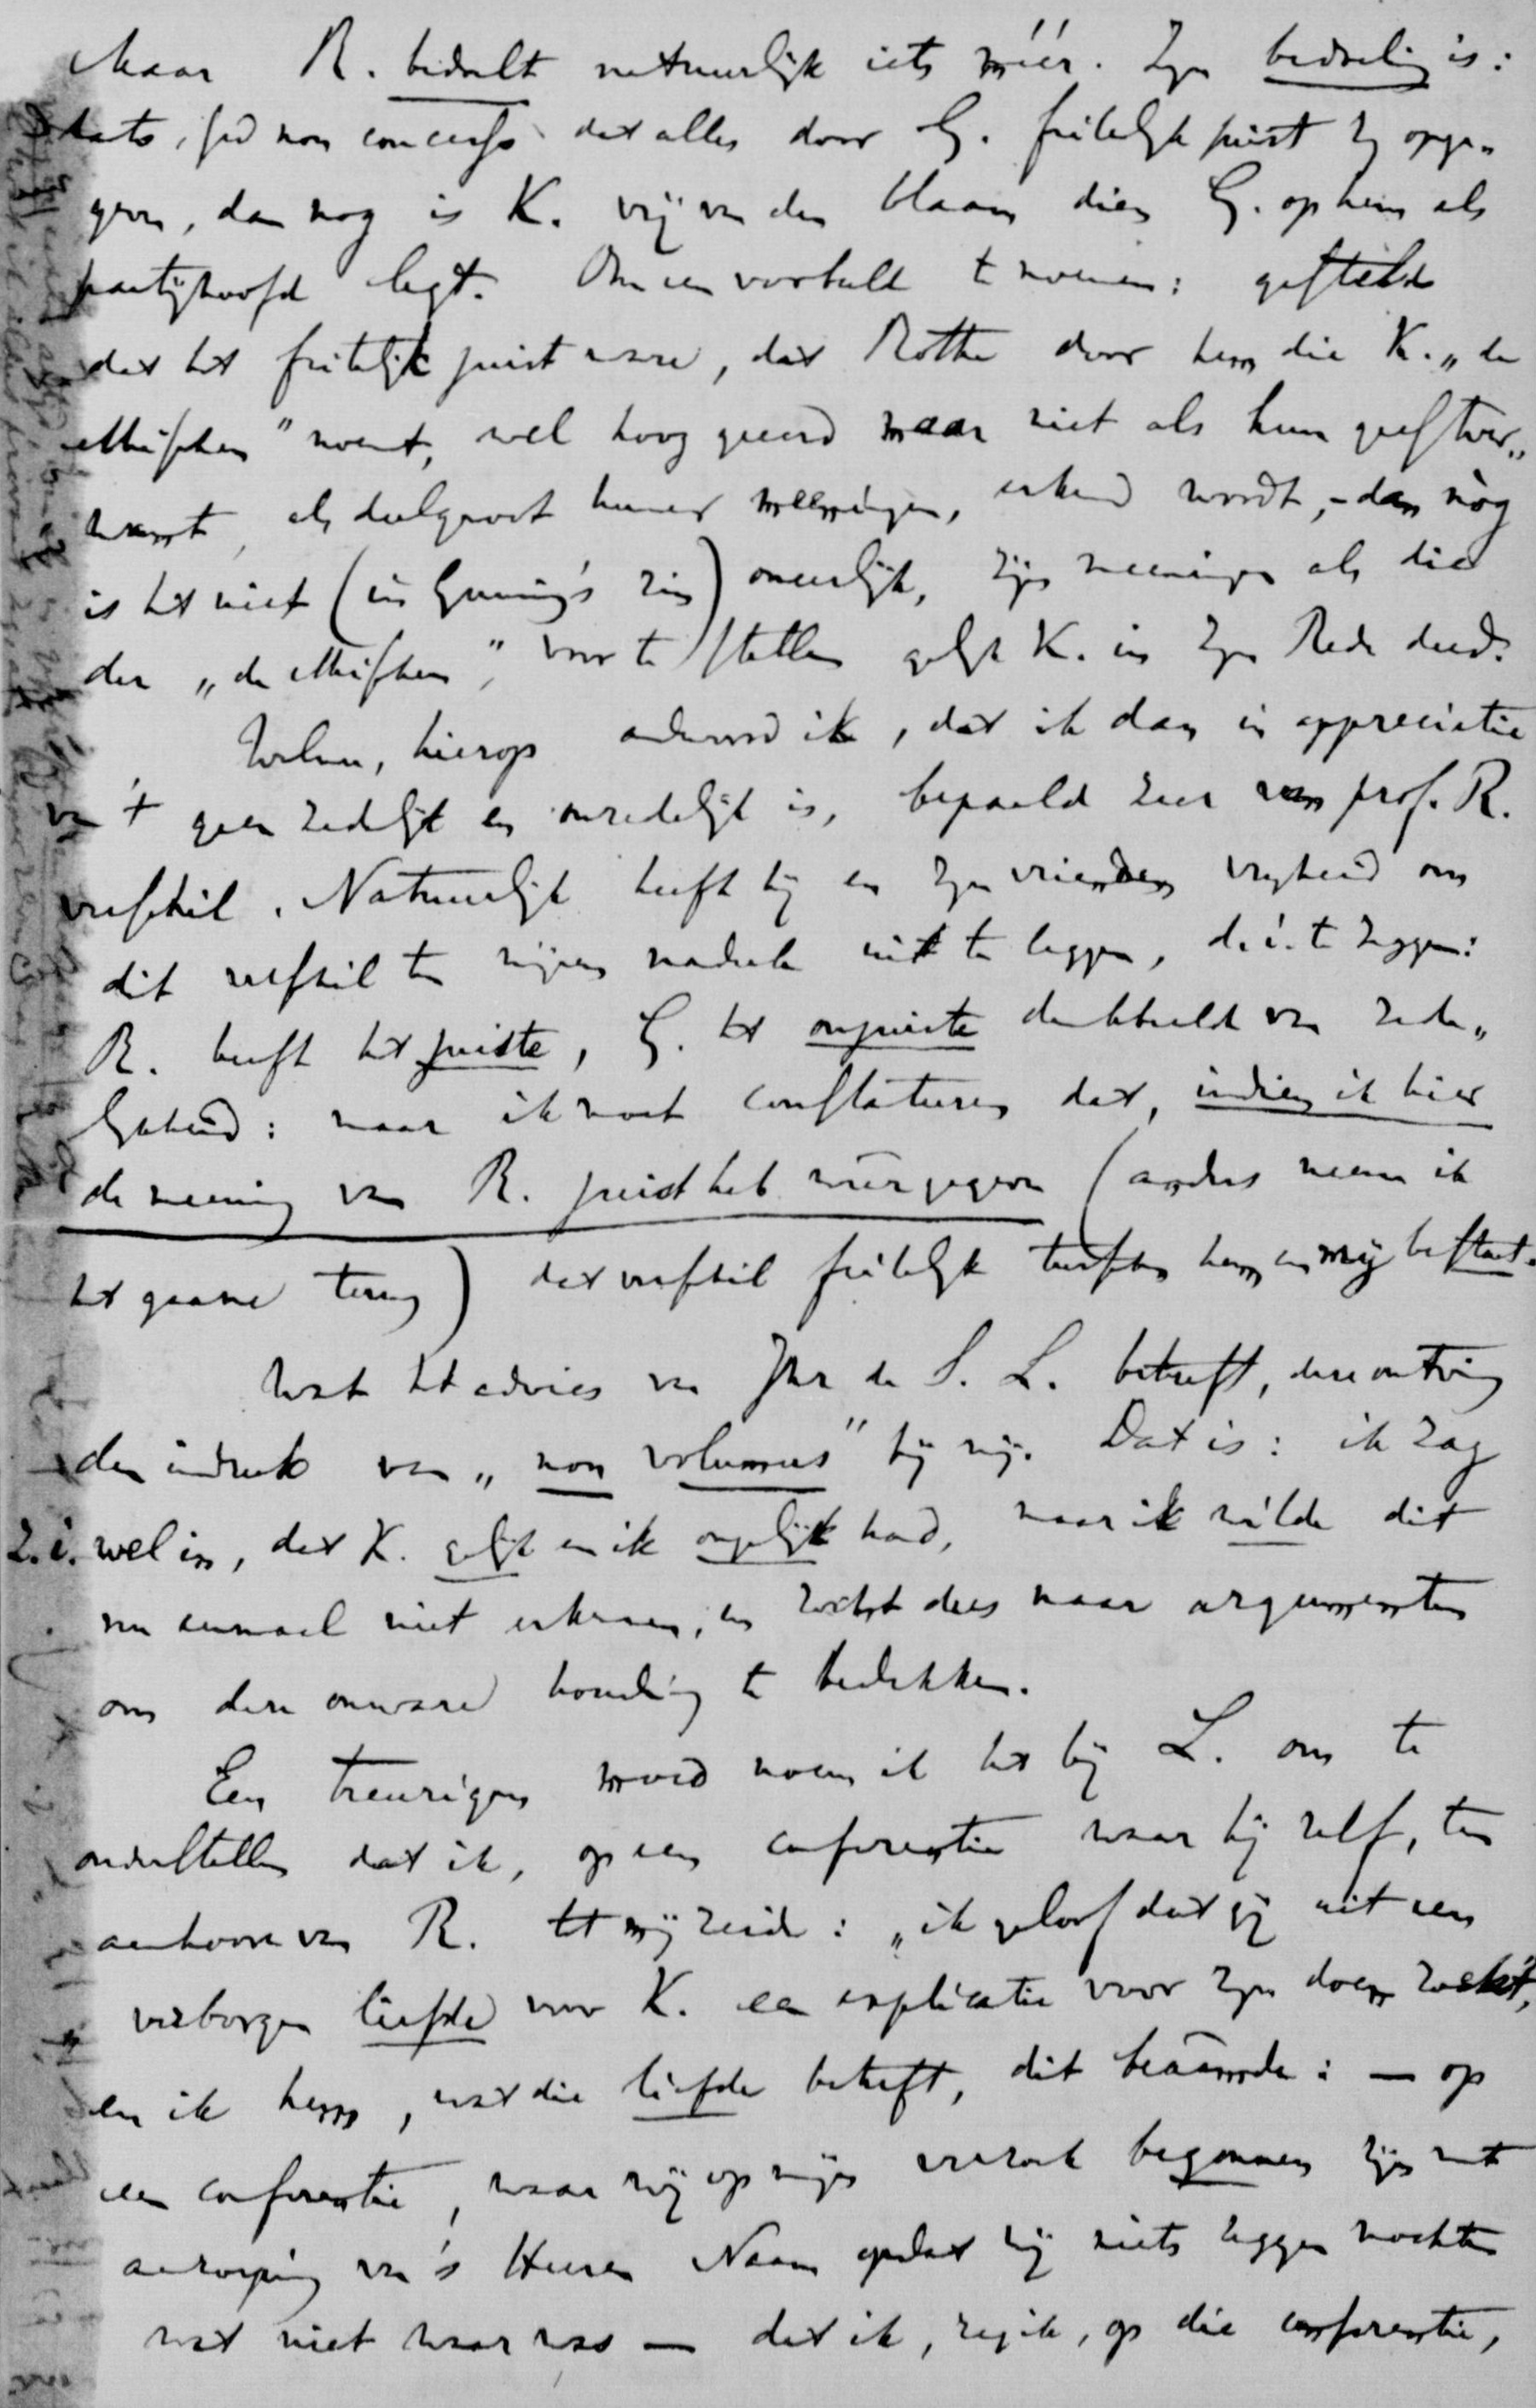 Maar R. bedoelt natuurlijk iets méér. Zijn bedoeling is:
dato, sed non concesso dat alles door G. feitelijk juist zij opge„
geven, dan nog is K. vrij van den blaam dien G. op hem als
partijhoofd legt. Om een voorbeeld te noemen: gesteld
dat het feitelijk juist ware, dat Rothe door hem die K. „de
ethischen” noemt, wel hoog geëerd maar niet als hun geestver„
want, als deelgenoot hunner meeningen, erkend wordt, – dan nòg
is het niet (in Gunning's zin) oneerlijk, zijn meeningen als die
der „de ethischen”, voor te stellen gelijk K. in zijn Rede deed.
Welnu, hierop antwoord ik, dat ik dan in appreciatie
van 't geen zedelijk en onzedelijk is, bepaald zeer van prof. R.
verschil. Natuurlijk heeft hij en zijn vrienden vrijheid om
dit verschil te mijnen nadeele uit te leggen, d.i. te zeggen:
R. heeft het juiste, G. het onjuiste denkbeeld van zede„
lijkheid: maar ik moet constateeren dat, indien ik hier
de meening van R. juist heb wêergegeven (anders neem ik
het gaarne terug) dat verschil feitelijk tusschen hem en mij bestaat.
Wat het advies van Jhr de S. L. betreft, deze ontving
den indruk van „non volumus” bij mij. Dat is: ik zag
z.i. wel in, dat K. gelijk en ik ongelijk had, maar ik wilde dit
nu eenmaal niet erkennen, en zocht dus naar argumenten
om deze onware houding te bedekken.
Een treurigen moed noem ik het bij L. om te
onderstellen dat ik, op een conferentie waar hij zelf, ten
aanhoore van R. tot mij zeide: „ik geloof dat gij uit een
verborgen liefde voor K. een explicatie voor zijn doen zoekt”,
en ik hem, wat die liefde betreft, dit beaâmde: — op
een conferentie, waar wij op mijn verzoek begonnen zijn met
aanroeping van 's Heeren Naam opdat wij niets zeggen mochten
wat niet waar was — dat ik, zeg ik, op die conferentie,